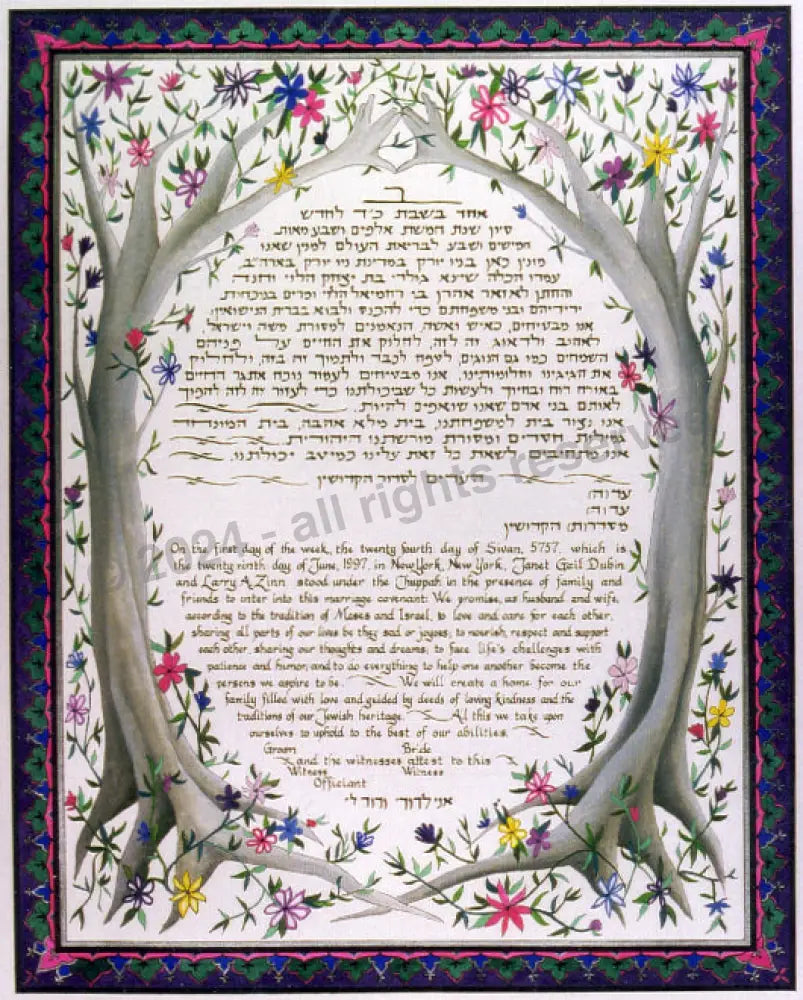 אחד בשבת כ״ד לחדש
סיון שנת חמשת אלפים ושבע מאות
חמישים ושבע לבריאת העולם למנין שאנו
מונין כאן בניו יורק במדינת ניו יורק בארה״ב
עמדו הכלה שיינא גולדי בת יצחק הלוי וחנה
והחתן לאזאר אהרן בן ירחמיאל הלוי ומרים בנוכחות
ידידיהם ובני משפחתם כדי להכנס ולבוא בברית הנישואין:
אנו מבטיחים, כאיש ואשה, הנאמנים למסורת משה וישראל,
לאהוב ולדאוג זה לזה, לחלוק את החיים על פניהם
השמחים כמו גם הנוגים, לטפח לכבד ולתמוך זה בזה, ולחלוק
את הגיגינו וחלומותינו, אנו מבטיחים לעמוד נוכח אתגר החיים
באורח רוח ובחיוך ולעשות כל שביכולתנו כדי לעזור זה לזה להפוך
לאותם בני אדם שאנו שואפים להיות.
אנו נצור בית למשפחתנו, בית מלא אהבה, בית המונחה
גמילות חסדים ומסורת מורשתנו היהודית.
אנו מתחייבים לשאת כל זאת עלינו כמיטב יכולתנו.
העדים לסדור הקדושין
עדות:
עדות:
מסדרות הקדושין
On the first day of the week, the twenty fourth day of Sivan, 5757, which is
the twenty ninth day of June, 1997, in New York, New York, Janet Gail Dubin
and Larry A. Zinn stood under the Chuppah in the presence of family and
friends to enter into this marriage covenant: We promise, as husband and wife,
according to the tradition of Moses and Israel, to love and care for each other,
sharing all parts of our lives be they sad or joyous; to nourish, respect and support
each other, sharing our thoughts and dreams; to face life's challenges with
patience and humor; and to do everything to help one another become the
persons we aspire to be. We will create a home for our
family filled with love and guided by deeds of loving kindness and the
traditions of our Jewish heritage. All this we take upon
ourselves to uphold to the best of our abilities.
Groom Bride
and the witnesses attest to this
Witness Witness
Officiant
אני לדודי ודודי לי
© 2024 - all rights reserve